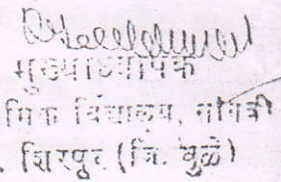 मुख्याध्यापक
मिक विद्यालय, सांगवी
. शिरपुर (जि. धुळे)